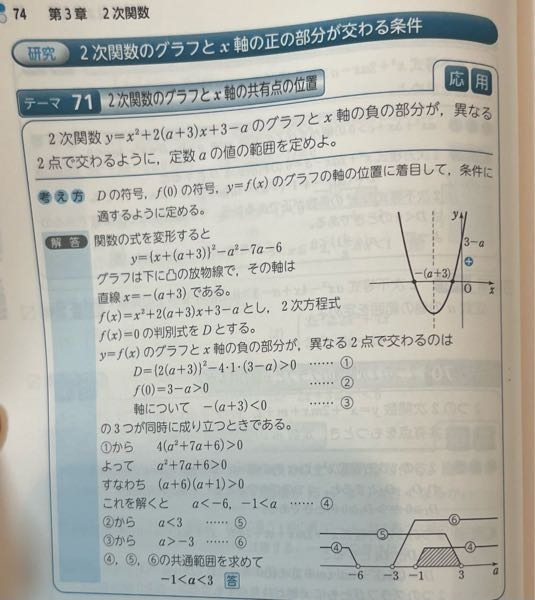 74 第3章 2次関数
研究 2次関数のグラフとx軸の正の部分が交わる条件
応用
テーマ 71 2次関数のグラフとx軸の共有点の位置
2次関数 y=x²+2(a+3)x+3-a のグラフとx軸の負の部分が，異なる
2点で交わるように，定数aの値の範囲を定めよ。
考え方 Dの符号，f(0)の符号，y=f(x)のグラフの軸の位置に着目して，条件に
適するように定める。
解答 関数の式を変形すると
y={x+(a+3)}²-a²-7a-6
グラフは下に凸の放物線で，その軸は
直線 x=-(a+3) である。
f(x)=x²+2(a+3)x+3-a とし，2次方程式
f(x)=0 の判別式をDとする。
y=f(x)のグラフとx軸の負の部分が，異なる2点で交わるのは
D={2(a+3)}²-4・1・(3-a)>0 …… ①
f(0)=3-a>0 …… ②
軸について -(a+3)<0 …… ③
の3つが同時に成り立つときである。
①から 4(a²+7a+6)>0
よって a²+7a+6>0
すなわち (a+6)(a+1)>0
これを解くと a<-6，-1<a …… ④
②から a<3 …… ⑤
③から a>-3 …… ⑥
④，⑤，⑥の共通範囲を求めて
-1<a<3 答
y
3-a
+
-(a+3)
O x
⑥
⑤
④ ④
-6 -3 -1 3 a